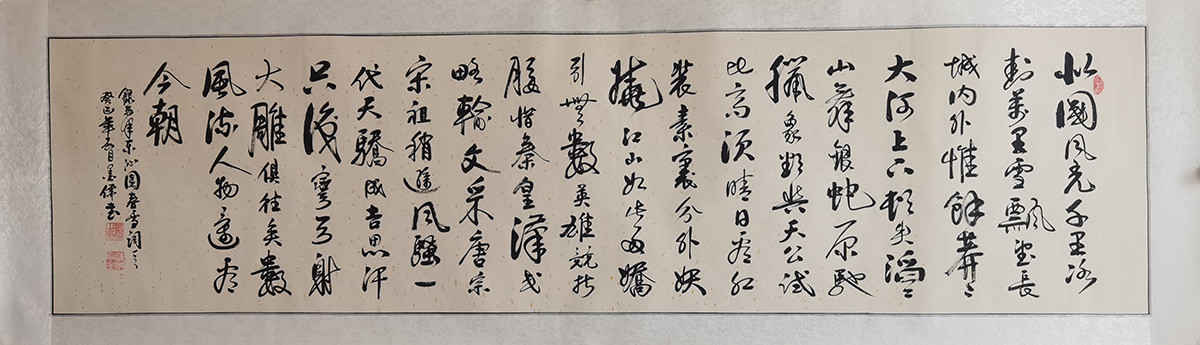 北國風光千里冰
封萬里雪飄望長
城內外惟餘莽々
大河上下頓失滔々
山舞銀蛇原馳
臘象欲與天公試
比高須晴日看紅
裝素裹分外妖
嬈江山如此多嬌
引無數英雄競折
腰惜秦皇漢武
略輸文采唐宗
宋祖稍遜風騷一
代天驕成吉思汗
只識彎弓射
大雕俱往矣數
風流人物還看
今朝
錄毛澤東沁園春雪詞
癸巳年月偉書